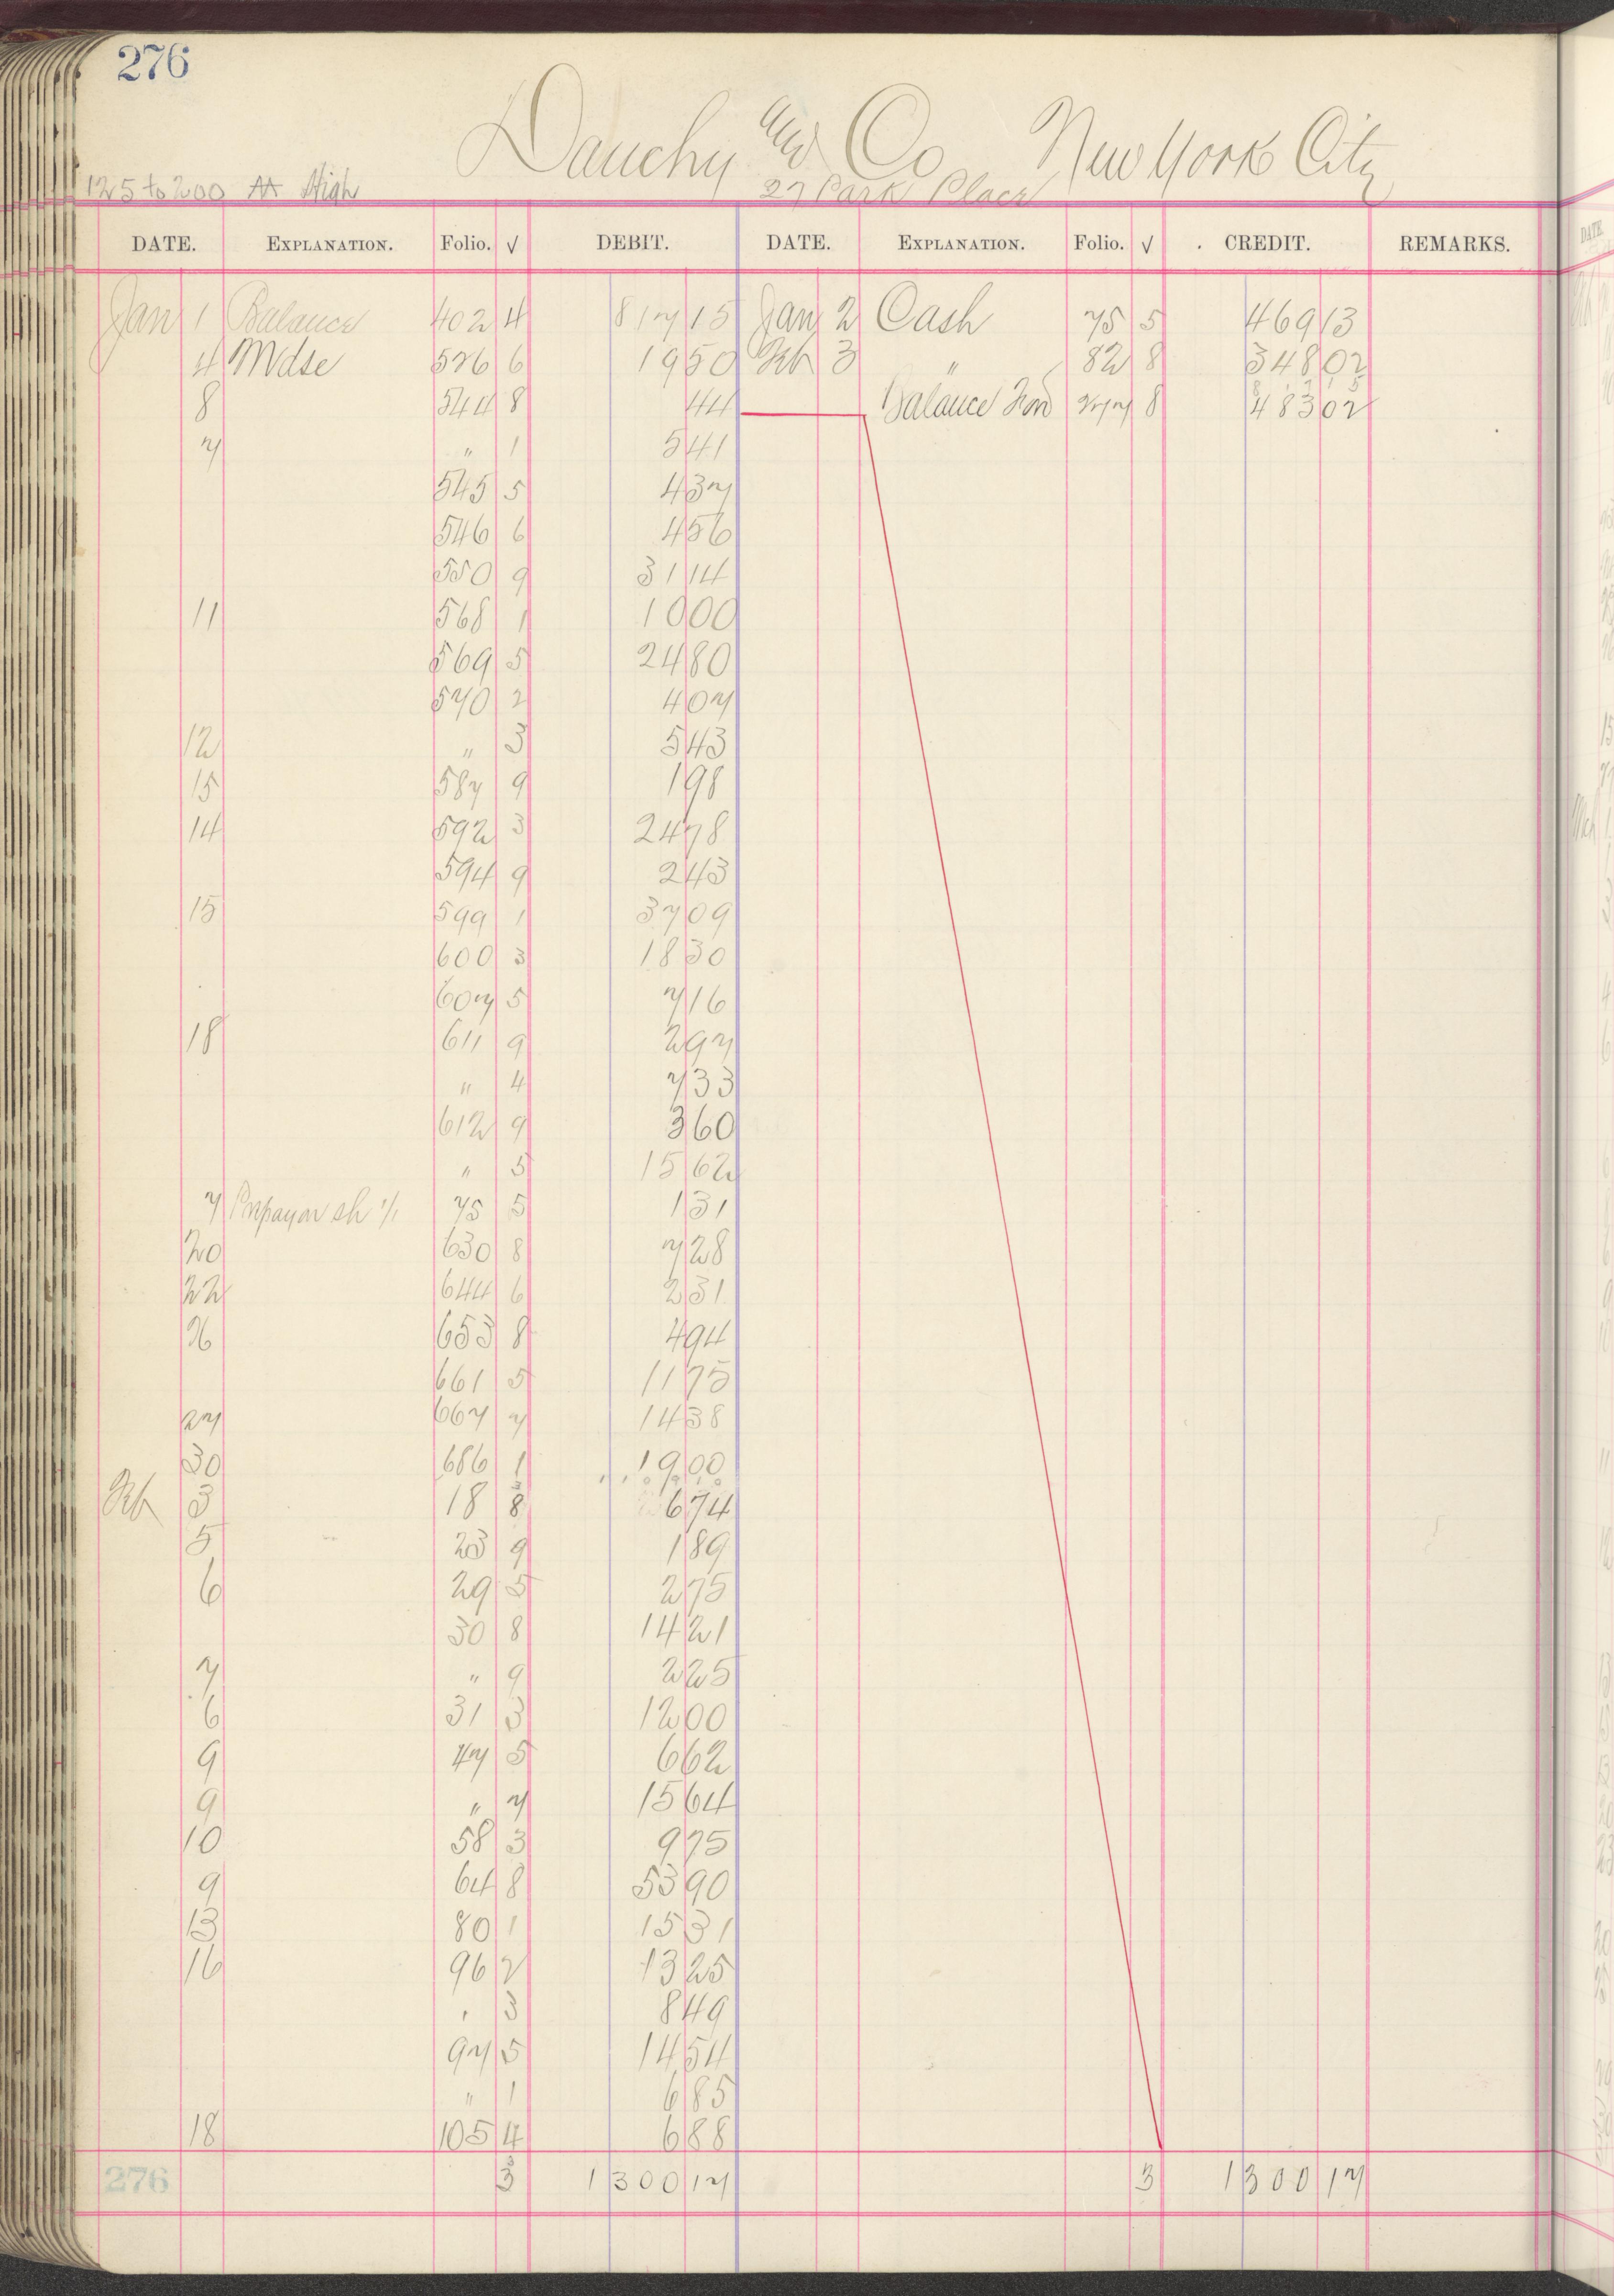 276
Dauchy and Co New York City
125 to 200 AA High 27 Park Place
DATE. EXPLANATION. Folio. √ DEBIT. DATE. EXPLANATION. Folio. √ CREDIT. REMARKS.
Jan 1 Balance 402 4 817 15 Jan 2 Cash 75 5 469 13
4 Mdse 526 6 19 50 Feb 3 " 82 8 348 02
8 544 8 44 Balance Ford 277 8 483 02
7 " 1 5 41
545 5 4 37
546 6 4 56
550 9 31 14
11 568 1 10 00
569 5 24 80
570 2 4 07
12 " 3 5 43
15 587 9 1 98
14 592 3 24 78
594 9 2 43
15 599 1 37 09
600 3 18 30
607 5 7 16
18 611 9 2 97
" 4 7 33
612 9 3 60
" 5 15 62
7 75 5 1 31
20 630 8 7 28
22 644 6 2 31
26 653 8 4 94
661 5 11 75
27 667 7 14 38
30 686 1 19 00
Feb 3 18 8 6 74
5 23 9 1 89
6 29 5 2 75
30 8 14 21
7 " 9 2 25
6 31 3 12 00
9 47 5 6 62
9 " 7 15 64
10 58 3 9 75
9 64 8 53 90
13 80 1 15 31
16 96 2 13 25
" 3 8 49
97 5 14 54
" 1 6 85
18 105 4 6 88
276 3 1300 17 3 1300 17